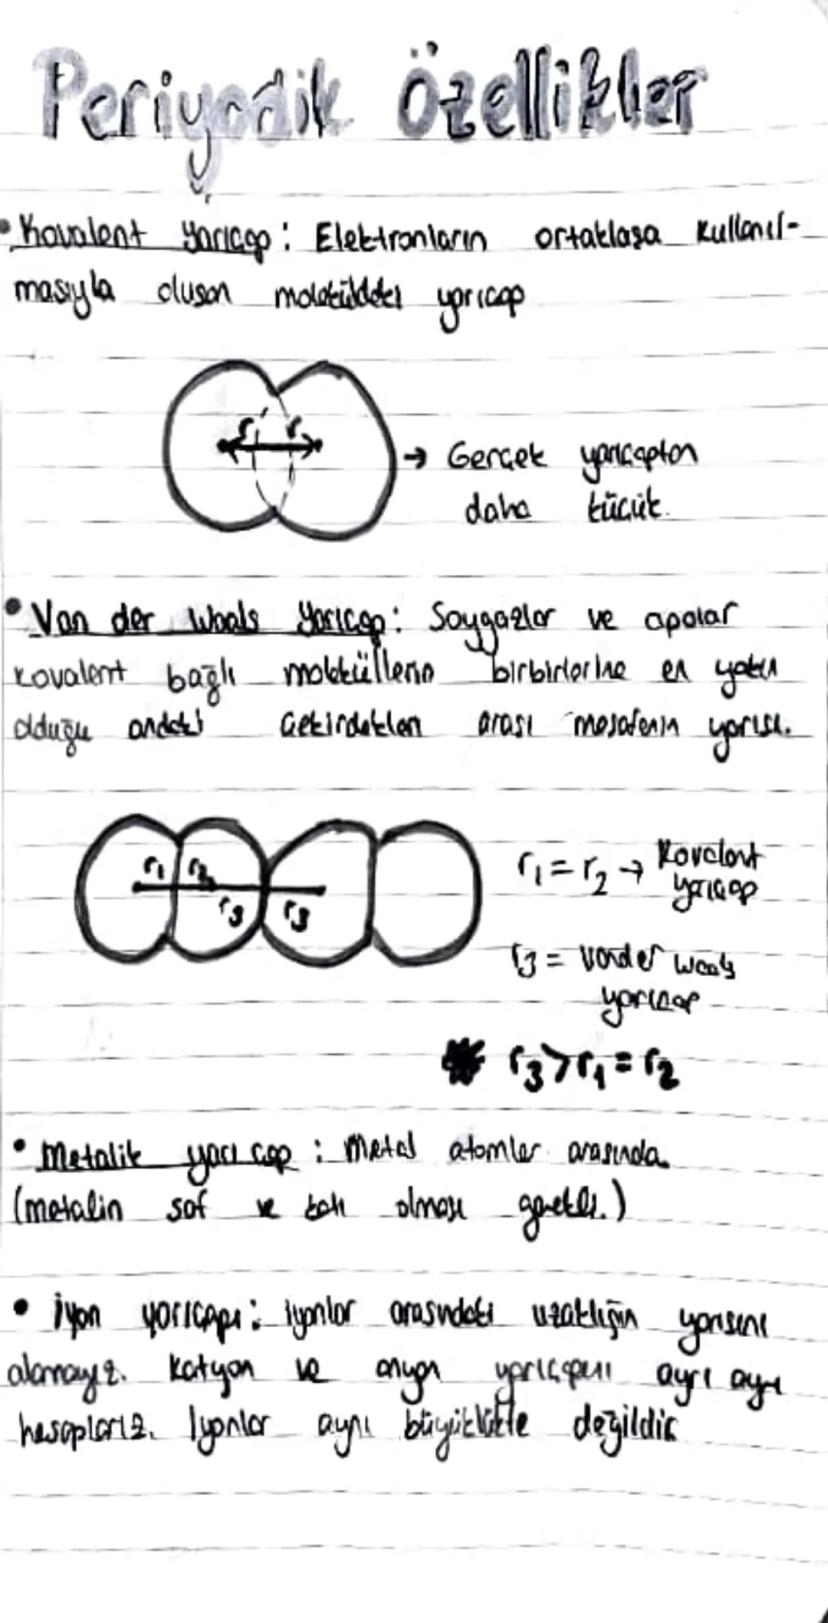 Periyodik Özellikler
• Kovalent yarıçap: Elektronların ortaklaşa kullanıl-
masıyla oluşan moleküldeki yarıçap
r r
→ Gerçek yarıçaptan
daha küçük.
• Van der Waals Yarıçap: Soygazlar ve apolar
kovalent bağlı moleküllerin birbirlerine en yakın
olduğu andaki çekirdekleri arası mesafenin yarısı.
r₁ r₂
r₃ r₃
r₁ = r₂ → Kovalent
yarıçap
r₃ = vander waals
yarıçap
* r₃ > r₁ = r₂
• Metalik yarıçap: Metal atomlar arasında.
(metalin saf ve katı olması gerekli.)
• İyon yarıçapı: iyonlar arasındaki uzaklığın yarısını
alamayız. Katyon ve anyon yarıçapını ayrı ayrı
hesaplarız. İyonlar aynı büyüklükte değildir